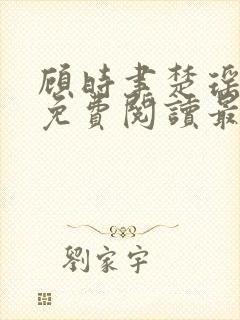 顧時聿楚瑤
免費閱讀最
劉家宇